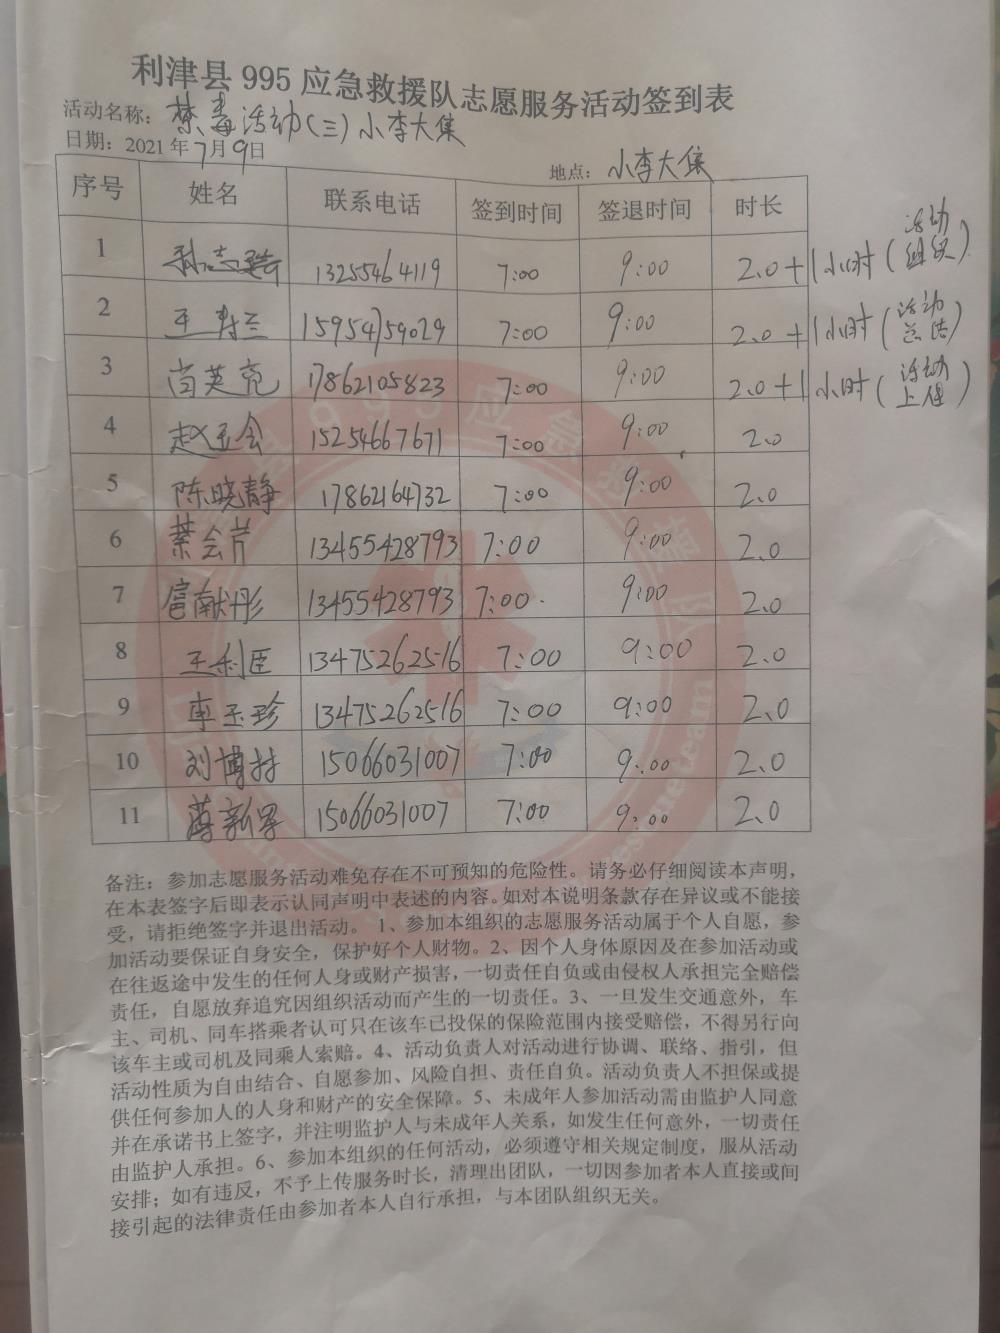 利津县 995 应急救援队志愿服务活动签到表
活动名称：禁毒活动(三)小李大集
日期：2021 年 7 月 9 日
地点：小李大集
序号 姓名 联系电话 签到时间 签退时间 时长
1 孙志 13255464119 7:00 9:00 2.0+1小时(活动组织)
2 王寿兰 15954759029 7:00 9:00 2.0+1小时(活动总结)
3 尚英亮 17862105823 7:00 9:00 2.0+1小时(活动上传)
4 赵玉会 15254667671 7:00 9:00 2.0
5 陈晓静 17862164732 7:00 9:00 2.0
6 綦会芹 13455428793 7:00 9:00 2.0
7 扈献彤 13455428793 7:00 9:00 2.0
8 王利臣 13475262516 7:00 9:00 2.0
9 李玉珍 13475262516 7:00 9:00 2.0
10 刘博 15066031007 7:00 9:00 2.0
11 薄新军 15066031007 7:00 9:00 2.0
备注：参加志愿服务活动难免存在不可预知的危险性。请务必仔细阅读本声明，
在本表签字后即表示认同声明中表述的内容。如对本说明条款存在异议或不能接
受，请拒绝签字并退出活动。 1、参加本组织的志愿服务活动属于个人自愿，参
加活动要保证自身安全，保护好个人财物。2、因个人身体原因及在参加活动或
在往返途中发生的任何人身或财产损害，一切责任自负或由侵权人承担完全赔偿
责任，自愿放弃追究因组织活动而产生的一切责任。3、一旦发生交通意外，车
主、司机、同车搭乘者认可只在该车已投保的保险范围内接受赔偿，不得另行向
该车主或司机及同乘人索赔。4、活动负责人对活动进行协调、联络、指引，但
活动性质为自由结合、自愿参加、风险自担、责任自负。活动负责人不担保或提
供任何参加人的人身和财产的安全保障。5、未成年人参加活动需由监护人同意
并在承诺书上签字，并注明监护人与未成年人关系，如发生任何意外，一切责任
由监护人承担。6、参加本组织的任何活动，必须遵守相关规定制度，服从活动
安排；如有违反，不予上传服务时长，清理出团队，一切因参加者本人直接或间
接引起的法律责任由参加者本人自行承担，与本团队组织无关。